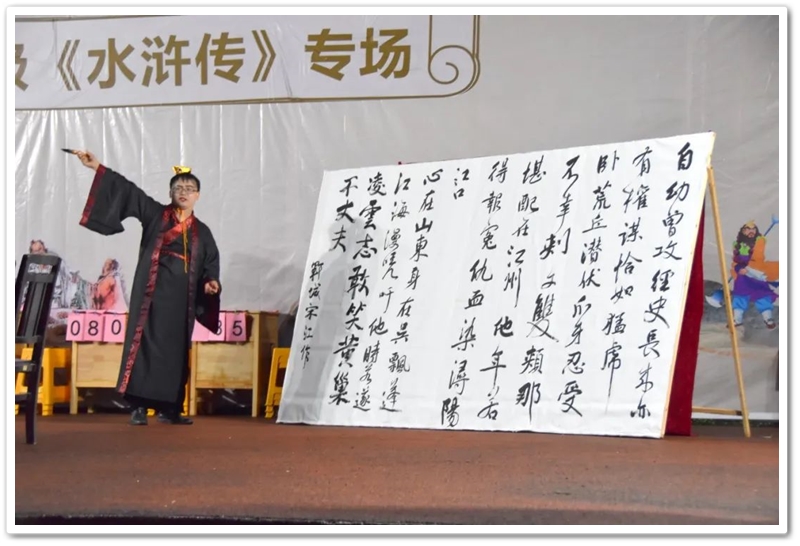 《水浒传》专场
自幼曾攻經史長来亦
有權謀恰如猛虎
卧荒丘潜伏爪牙忍受
不幸刺文雙頰那
堪配在江州他年若
得報冤仇血染潯陽
江口
心在山東身在吴飄蓬
江海漫嗟吁他時若遂
凌雲志敢笑黄巢
不丈夫
鄆城宋江作
080
85